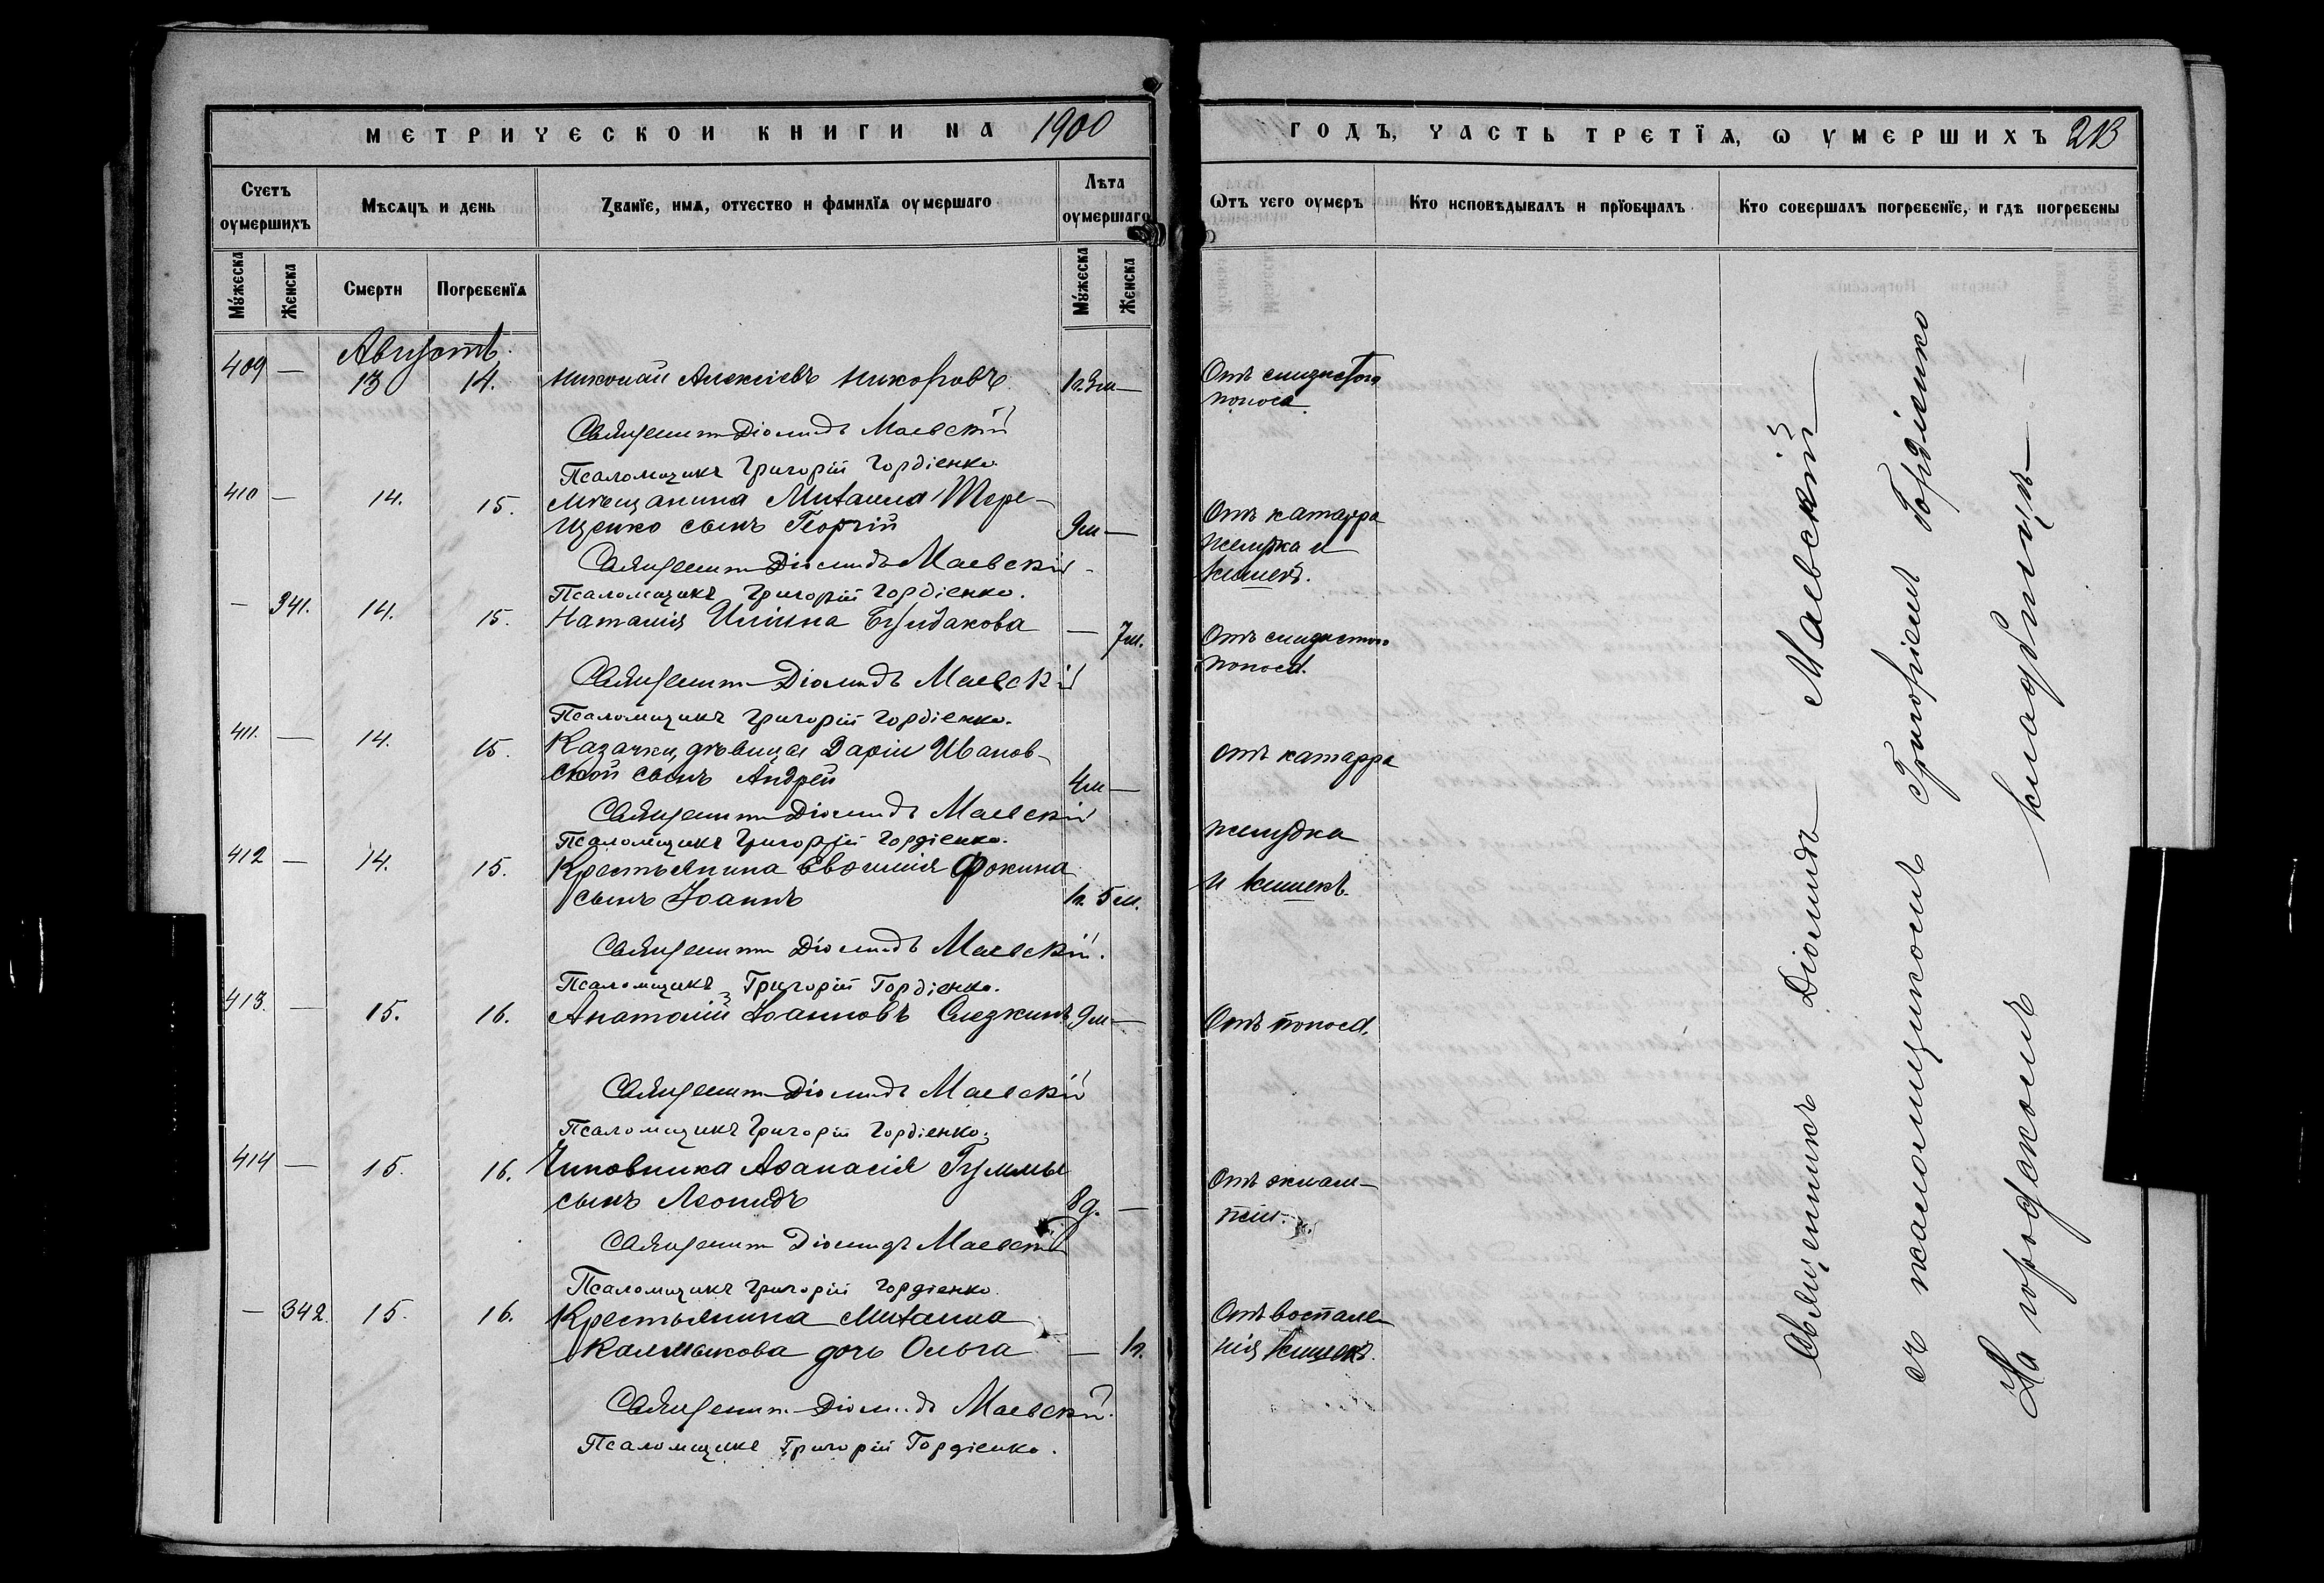 МЕТРИЧЕСКОЙ КНИГИ НА 1900
ГОДЪ, ЧАСТЬ ТРЕТЇѦ, Ѡ УМЕРШИХЪ 213
Счетъ оумершихъ
Мѣсѧцъ и день
Званїе, имѧ, отчество и фамилїѧ оумершаго
Лѣта оумершаго
Ѿтъ чего оумеръ
Кто исповѣдывалъ и прїобщалъ
Кто совершалъ погребенїе, и гдѣ погребены
Мужеска
Женска
Смерти
Погребенїѧ
Мужеска
Женска
Августъ.
409 — 13 14. Николай Алексіевъ Никоровъ 1г. 3м — Отъ слизистого
поноса.
Священникъ Діомидъ Маевскій
Псаломщикъ Григорій Гордіенко.
410 — 14. 15. Мѣщанина Михаила Тере-
щенко сынъ Георгій 9м — Отъ катарра
желудка и
кишекъ.
Священникъ Діомидъ Маевскій
Псаломщикъ Григорій Гордіенко.
— 341. 14. 15. Наталія Иліина — 7м. Отъ слизистого
поноса.
Священникъ Діомидъ Маевскій
Псаломщикъ Григорій Гордіенко.
411. — 14. 15. Казачки, дѣвицы Даріи Иванов-
ской сынъ Андрей 4м — отъ катарра
желудка
и кишекъ.
Священникъ Діомидъ Маевскій
Псаломщикъ Григорій Гордіенко.
412 — 14. 15. Крестьянина Евѳимія Фокина
сынъ Іоаннъ 1г. 5м.
Священникъ Діомидъ Маевскій.
Псаломщикъ Григорій Гордіенко.
413. — 15. 16. Анатолій Іоанновъ Слезкинъ 9м — Отъ поноса.
Священникъ Діомидъ Маевскій
Псаломщикъ Григорій Гордіенко.
414 — 15. 16. Чиновника Аѳанасія Гуммы
сынъ Леонидъ 8д. — Отъ эклам-
псіи.
Священникъ Діомидъ Маевскій
Псаломщикъ Григорій Гордіенко.
— 342. 15. 16. Крестьянина Михаила
Калмыкова дочь Ольга — 1г. Отъ воспале-
нія кишекъ.
Священникъ Діомидъ Маевскій.
Псаломщикъ Григорій Гордіенко.
Священникъ Діомидъ — Маевскій —
съ псаломщикомъ Григоріемъ Гордіенко
На городскомъ — кладбищѣ —